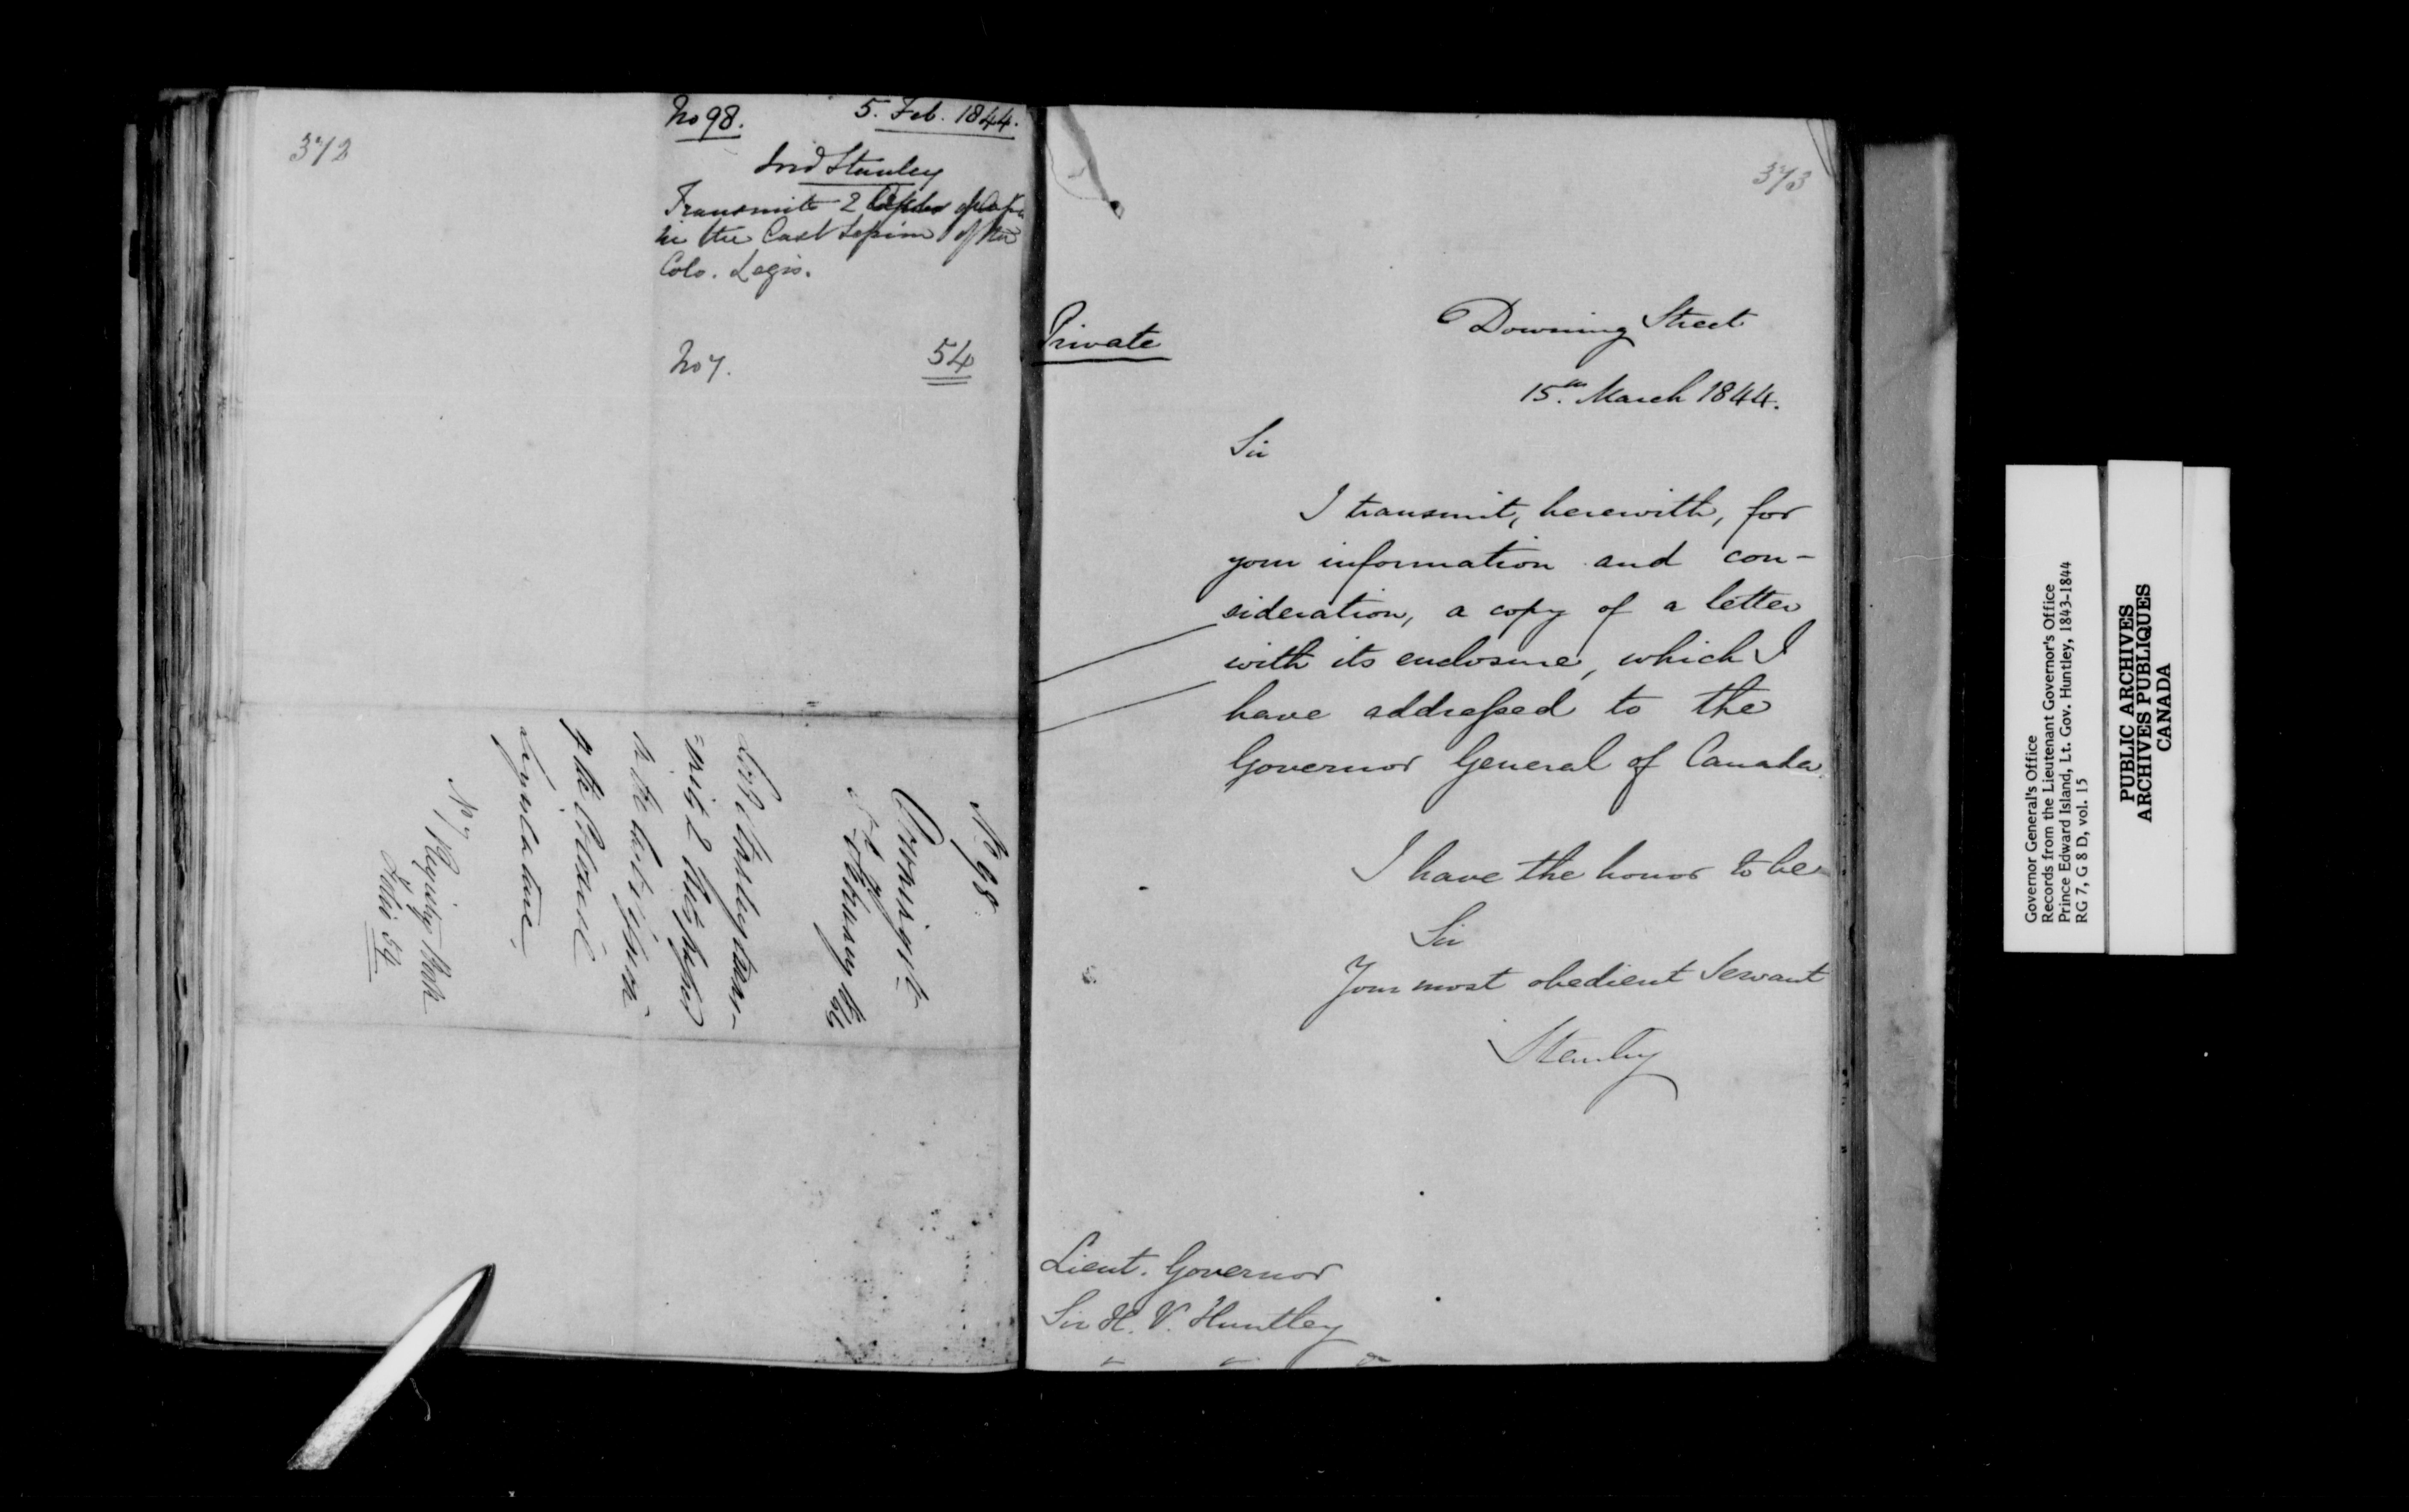 372
No 98. 5. Feb. 1844.
Lord Stanley
Transmits 2 Copies of
in the Last Session of the
Colo. Legis.
No 7. 54
No 98.
Downing St.
5 February 1844
Lord Stanley trans-
-mits 2
in the last Session
of the Colonial
Legislature
No 7
Folio 54
373
Private
Downing Street
15th. March 1844.
Sir
I transmit, herewith, for
your information and con-
sideration, a copy of a letter
with its enclosure, which I
have addressed to the
Governor General of Canada.
I have the honor to be
Sir
Your most obedient Servant
Stanley
Lieut. Governor
Sir H. V. Huntley
Governor General's Office
Records from the Lieutenant Governor's Office
Prince Edward Island, Lt. Gov. Huntley, 1843-1844
RG 7, G 8 D, vol. 15
PUBLIC ARCHIVES
ARCHIVES PUBLIQUES
CANADA